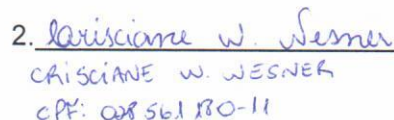 2. Carisciane W. Wesner
CRISCIANE W. WESNER
CPF: 028 561 180-11